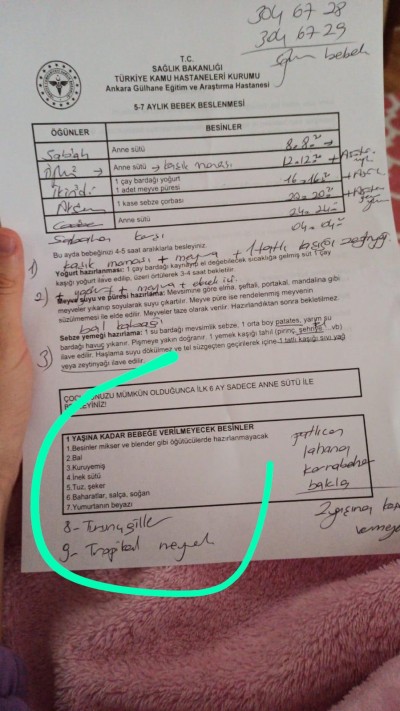 304 67 28
304 67 29
bebek
T.C.
SAĞLIK BAKANLIĞI
TÜRKİYE KAMU HASTANELERİ KURUMU
Ankara Gülhane Eğitim ve Araştırma Hastanesi
5-7 AYLIK BEBEK BESLENMESİ
ÖĞÜNLER BESİNLER
Sabah Anne sütü
Anne sütü → kaşık maması
1 çay bardağı yoğurt
İkindi 1 adet meyve püresi
Akşam 1 kase sebze çorbası
Anne sütü
Bu ayda bebeğinizi 4-5 saat aralıklarla besleyiniz.
1) kaşık maması + meyva + 1 tatlı kaşığı zeytinyağı
Yoğurt hazırlanması: 1 çay bardağı kaynayıp el değebilecek sıcaklığa gelmiş süt 1 çay
kaşığı yoğurt ilave edilip, üzeri örtülerek 3-4 saat bekletilir.
2) + yoğurt + meyva +
Meyva suyu ve püresi hazırlama: Mevsimine göre elma, şeftali, portakal, mandalina gibi
meyveler yıkanıp soyularak suyu çıkartılır. Meyve püre ise rendelenmiş meyvenin
süzülmemesi ile elde edilir. Meyveler taze olarak verilir. Hazırlandıktan sonra bekletilmez.
bal kabağı
Sebze yemeği hazırlama: 1 su bardağı mevsimlik sebze, 1 orta boy patates, yarım su
3) bardağı havuç yıkanır. Pişmeye yakın doğranır. 1 yemek kaşığı tahıl (pirinç, şehriye, vb)
ilave edilir. Haşlama suyu dökülmez ve tel süzgeçten geçirilerek içine 1 tatlı kaşığı sıvı yağ
veya zeytinyağı ilave edilir.
ÇOCUĞUNUZU MÜMKÜN OLDUĞUNCA İLK 6 AY SADECE ANNE SÜTÜ İLE
1 YAŞINA KADAR BEBEĞE VERİLMEYECEK BESİNLER
1.Besinler mikser ve blender gibi öğütücülerde hazırlanmayacak
2.Bal
3.Kuruyemiş
4.İnek sütü
5.Tuz, şeker
6.Baharatlar, salça, soğan
7.Yumurtanın beyazı
patlıcan
lahana
karnabahar
bakla
8- Turunçgiller
9- Tropikal meyve